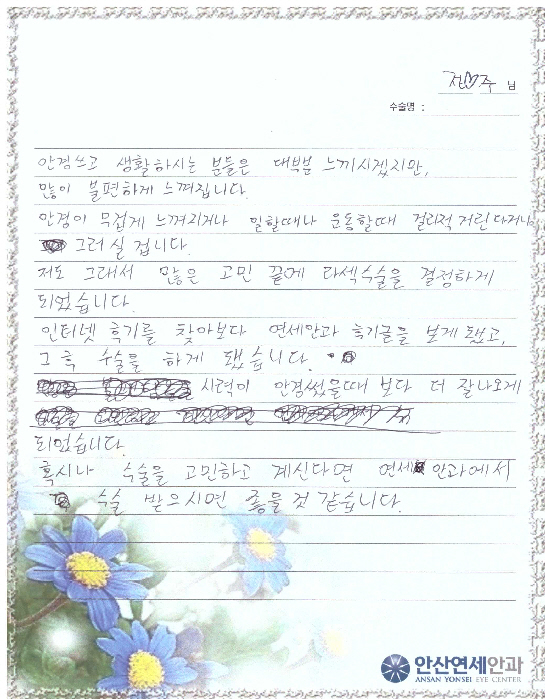 전♡주 님
수술명 :
안경쓰고 생활하시는 분들은 대부분 느끼시겠지만,
많이 불편하게 느껴집니다.
안경이 무겁게 느껴지거나 일할때나 운동할때 걸리적 거린다거나
그러실 겁니다.
저도 그래서 많은 고민 끝에 라섹수술을 결정하게
되었습니다.
인터넷 후기를 찾아보다 연세안과 후기글을 보게 됐고,
그 후 수술을 하게 됐습니다.
시력이 안경썼을때 보다 더 잘나오게
되었습니다
혹시나 수술을 고민하고 계신다면 연세 안과에서
수술 받으시면 좋을 것 같습니다.
안산연세안과
ANSAN YONSEI EYE CENTER